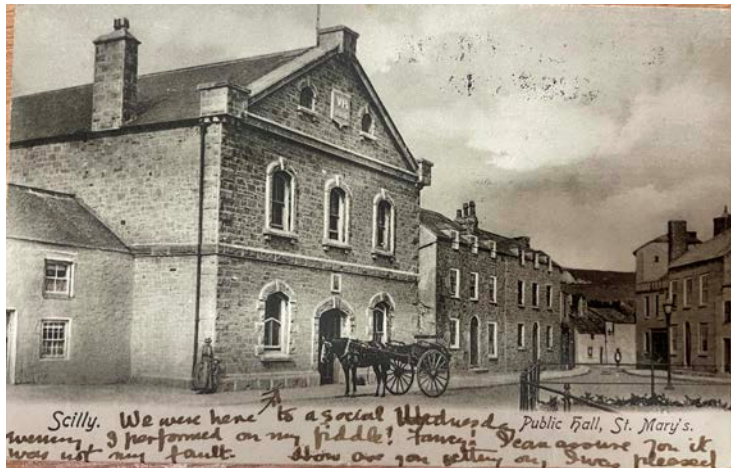 Scilly. We were here to a social Wednesday Public Hall, St. Mary's.
evening I performed on my fiddle! Fancy! I can assure you it
was not my fault. How are you getting on, I was pleased